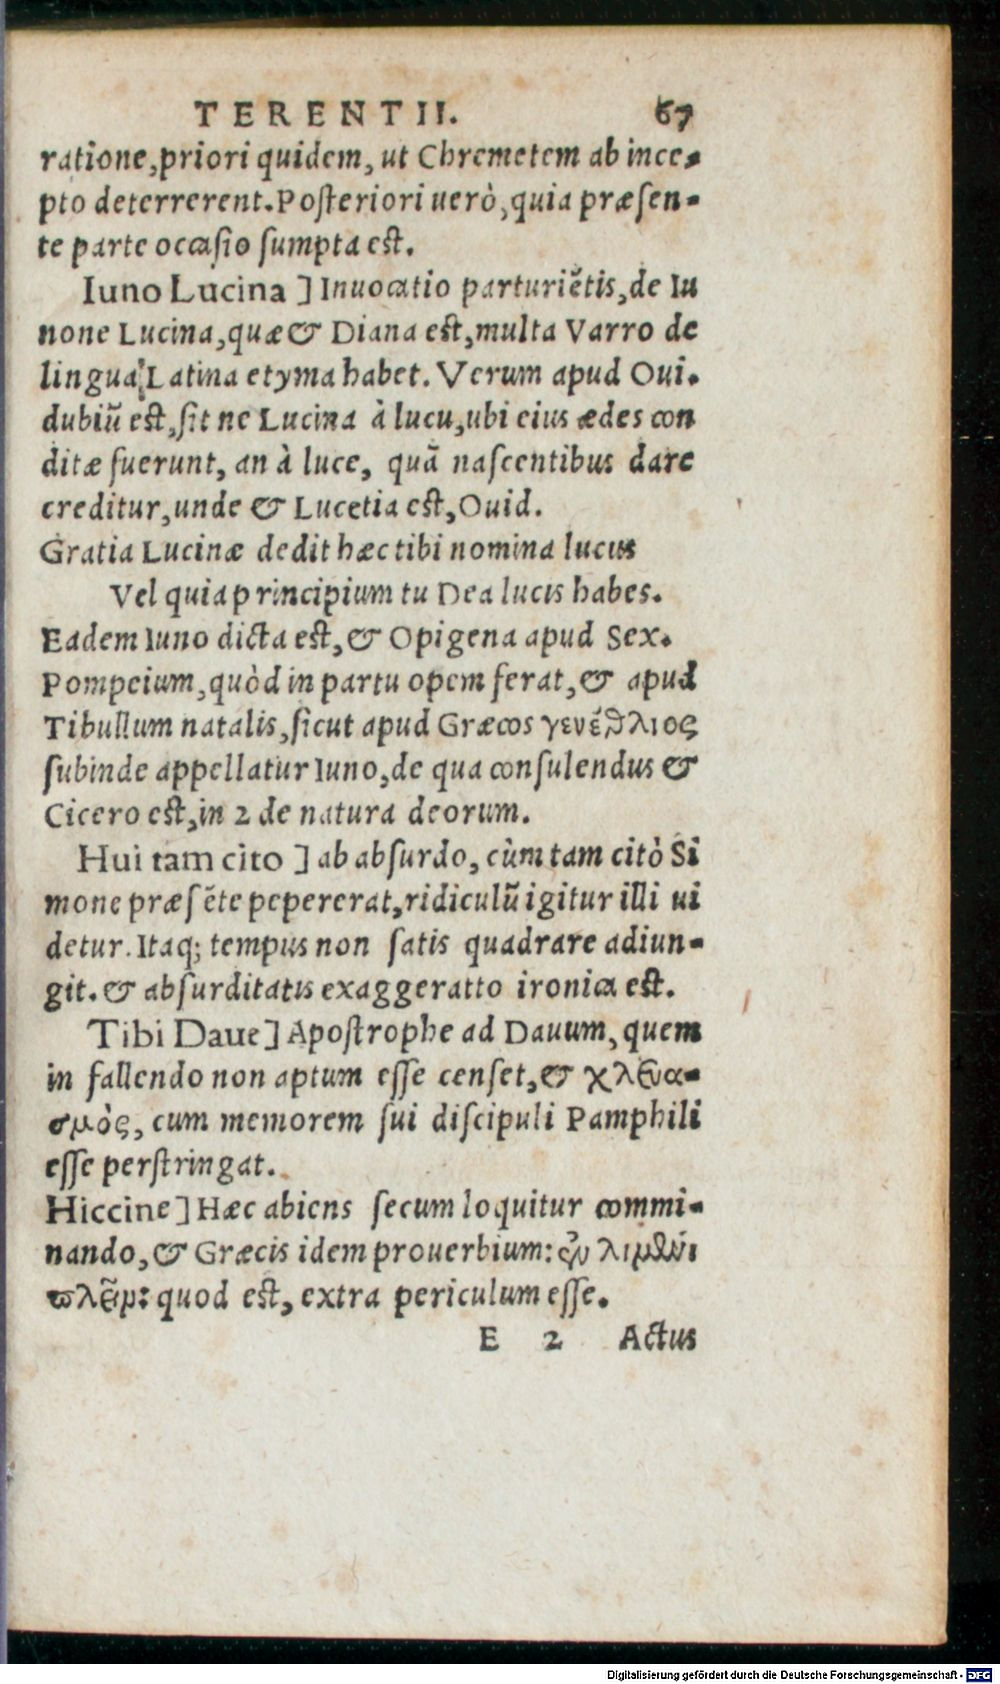 TERENTII. 67
ratione, priori quidem, ut Chremetem ab ince-
pto deterrerent. Posteriori uerò, quia præsen-
te parte occasio sumpta est.
Iuno Lucina ] Inuocatio parturiẽtis, de Iu
none Lucina, quæ & Diana est, multa Varro de
lingua Latina etyma habet. Verum apud Oui.
dubiũ est, sit ne Lucina à lucu, ubi eius ædes con
ditæ fuerunt, an à luce, quã nascentibus dare
creditur, unde & Lucetia est, Ouid.
Gratia Lucinæ dedit hæc tibi nomina lucus
Vel quia principium tu Dea lucis habes.
Eadem Iuno dicta est, & Opigena apud Sex.
Pompeium, quòd in partu opem ferat, & apud
Tibullum natalis, sicut apud Græcos γενέθλιος
subinde appellatur Iuno, de qua consulendus &
Cicero est, in 2 de natura deorum.
Hui tam cito ] ab absurdo, cùm tam citò Si
mone præsẽte pepererat, ridiculũ igitur illi ui
detur. Itaq; tempus non satis quadrare adiun-
git. & absurditatis exaggeratto ironica est.
Tibi Daue] Apostrophe ad Dauum, quem
in fallendo non aptum esse censet, & χλευα-
σμὸς, cum memorem sui discipuli Pamphili
esse perstringat.
Hiccine] Hæc abiens secum loquitur commi-
nando, & Græcis idem prouerbium: λιμένι
quod est, extra periculum esse.
E 2 Actus
Digitalisierung gefördert durch die Deutsche Forschungsgemeinschaft - DFG